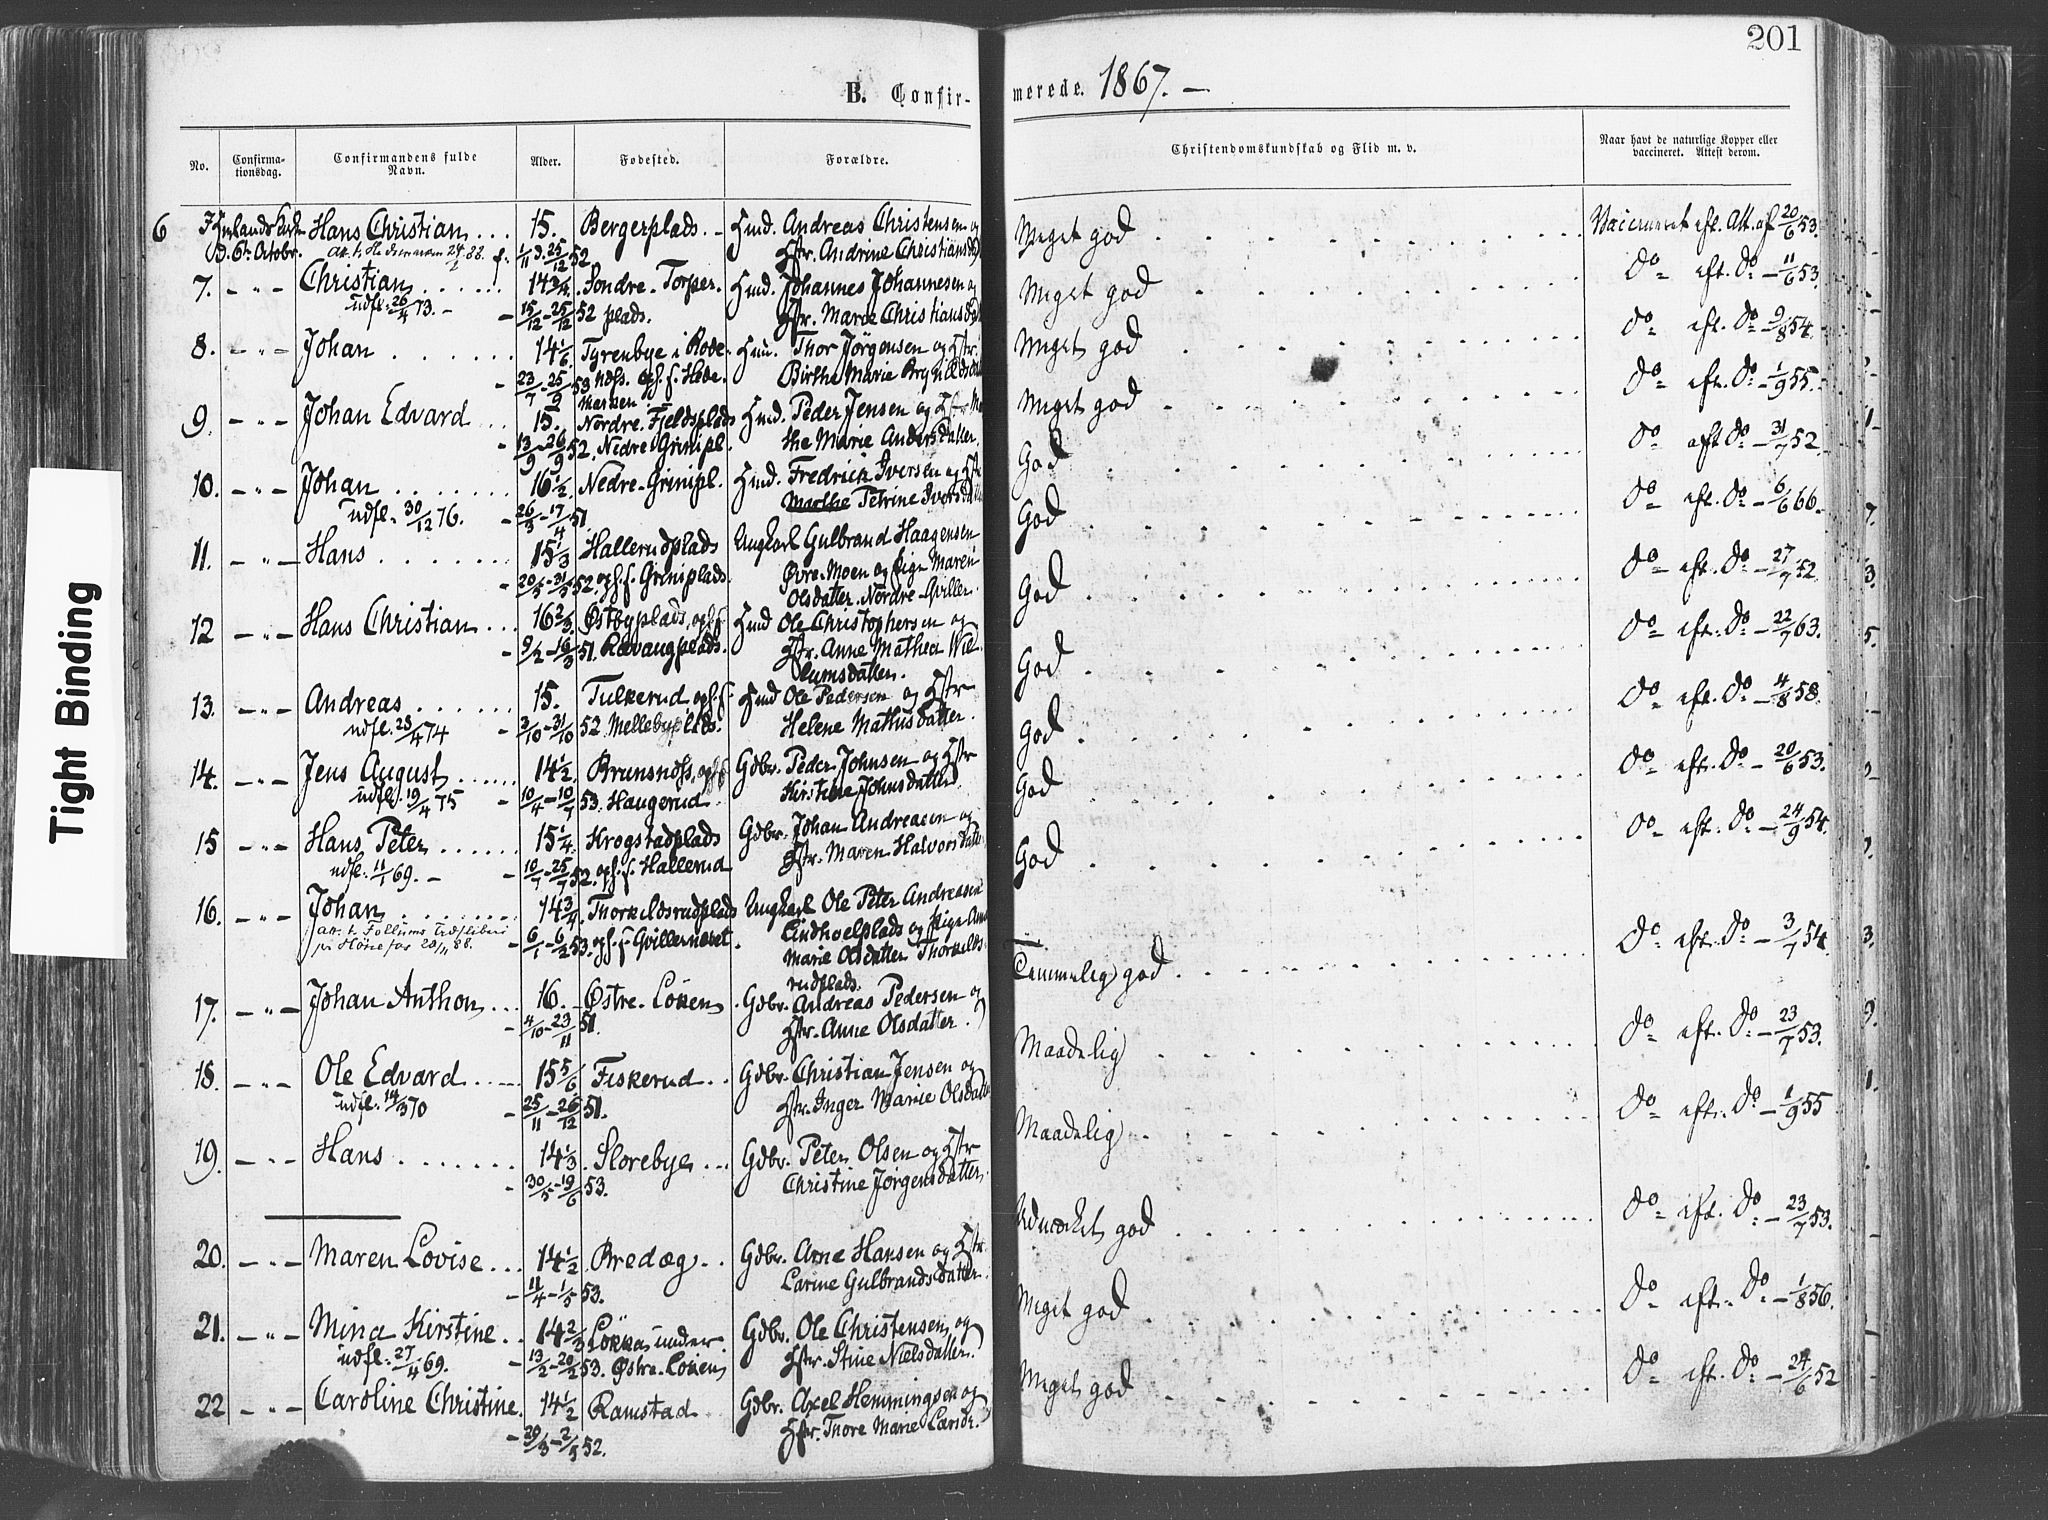 201
B. Confir-
merede. 1867. —
No.
Confirma-
tionsdag.
Confirmandens fulde
Navn.
Alder.
Fødested.
Forældre.
Christendomskundskab og Flid m. v.
Naar havt de naturlige Kopper eller
vaccineret. Attest derom.
6 Hans Christian 15. Bergerplads. Hmd. Andreas Christensen og Meget god Vaccineret eft. Att. af 20/6 53.
D. 6te Octobr. 1/11 - 25/12 52 Hstr. Andrine
7. — " — Christian 14 3/4 Søndre Torper Hmd. Johannes Johannesen og Meget god do eft. do — 11/6 53
udfl. 26/4 73. — 15/12 - 25/12 52 plads. Hstr. Marie Christiansd
8. — " — Johan 14 1/6 Tyrenbye i Hmd. Thor Jørgensen og Hstr. Meget god do eft. do — 9/8 54.
23/7 - 25/9 53 Birthe Marie
9. — " — Johan Edvard 15. Nordre Fjeldsplads Hmd. Peder Jensen og Hstr Meget god do eft. do — 1/9 55.
13/9 - 26/9 52. Nedre Grinipl. the Marie Andersdatter.
10. — " — Johan 16 1/2 Nedre Grinipl. Hmd. Fredrick Iversen og Hstr God do eft do — 31/7 52
udfl. 30/12 76. 26/3 - 17/4 51 Marthe Petrine
11. — " — Hans 15 1/3 Hallerudplads Ungkarl Gulbrand Haagensen God do eft. do — 6/6 66.
20/5 - 31/5 52. oph. f. Griniplads. Øvre Moen og Pige Maren
Olsdatter Nordre Gviller.
12 — " — Hans Christian 16 2/3 Østbyplads, oph. f. Hmd Ole Christophersen og God do eft. do — 27/7 52
9/2 - 16/3 51. Hstr. Anne Mathea Wil-
lumsdatter.
13. — " — Andreas 15. Tulkerud, oph. f. Hmd Ole Pedersen og Hstr God do eft. do — 22/7 63.
udfl. 28/4 74 3/10 - 31/10 52 Mellebyplads. Helene Mathisdatter.
14. — " — Jens August 14 1/2 Brunsnæss, oph. f. Gdbr. Peder Johnsen og Hstr God do eft. do — 4/8 58.
udfl. 19/4 75 10/4 - 10/7 53. Haugerud Kirstine Johnsdatter.
15 — " — Hans Peter 15 1/4 Krogstadplads Gdbr. Johan Andreasen og God do eft. do — 20/6 53.
udfl. 11/1 69. — 10/7 - 25/7 52. oph. f. Hallerud Hstr. Maren Halvorsdatter
16. — " — Johan 14 3/4 Thorkildsrudplads Ungkarl Ole Peter Andreasen God do eft. do — 24/9 54.
Att. t. Follums Træsliberi
på Hønefos 28/11 88. 6/1 - 6/2 53. oph. f. Gvillerneset. Lindhoelplads og Pige Anne
Marie Olsdatter Thorkilds-
rudplads.
17. — " — Johan Anthon 16. Østre Løken Gdbr. Andreas Pedersen og Temmelig god do eft. do — 3/7 54.
4/10 - 23/11 51. Hstr. Anne Olsdatter.
18. — " — Ole Edvard 15 5/6 Fiskerud Gdbr. Christian Jensen og Maadelig do eft. do — 23/7 53.
udfl. 14/3 70 25/11 - 26/12 51. Hstr. Inger Marie Olsdatter
19. — " — Hans 14 1/3 Storebye Gdbr. Peter Olsen og Hstr Maadelig do eft. do — 1/9 55
30/5 - 19/6 53. Christine Jørgensdatter.
20. — " — Maren Lovise 14 1/2 Bredæg Gdbr. Arne Hansen og Hstr. Udmærket god do eft. do — 23/7 53.
11/4 - 1/5 53. Larine Gulbrandsdatter.
21. — " — Mina Kirstine 14 2/3 Løkka under Gdbr. Ole Christensen og Meget god do eft. do — 1/8 56.
udfl. 27/4 69. 13/2 - 20/2 53. Østre Løken Hstr. Stine Nielsdatter.
22 — " — Caroline Christine 14 1/2 Ramstad Gdbr. Axel Hemmingsen og Meget god do eft. do — 24/6 52
29/3 - 2/5 52. Hstr. Thore Marie
Tight Binding